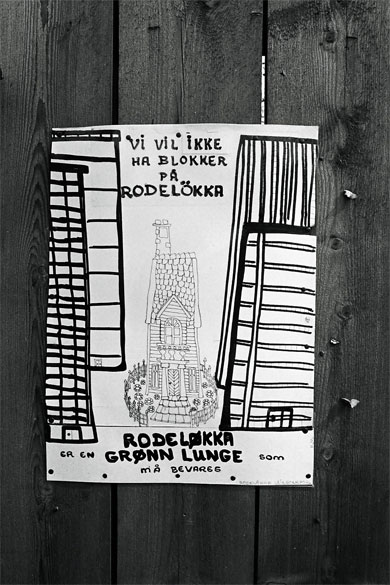 Vi VIL IKKE
HA BLOKKER
PÅ
RODELÖKKA
RODELØKKA
ER EN GRØNN LUNGE som
MÅ BEVARES